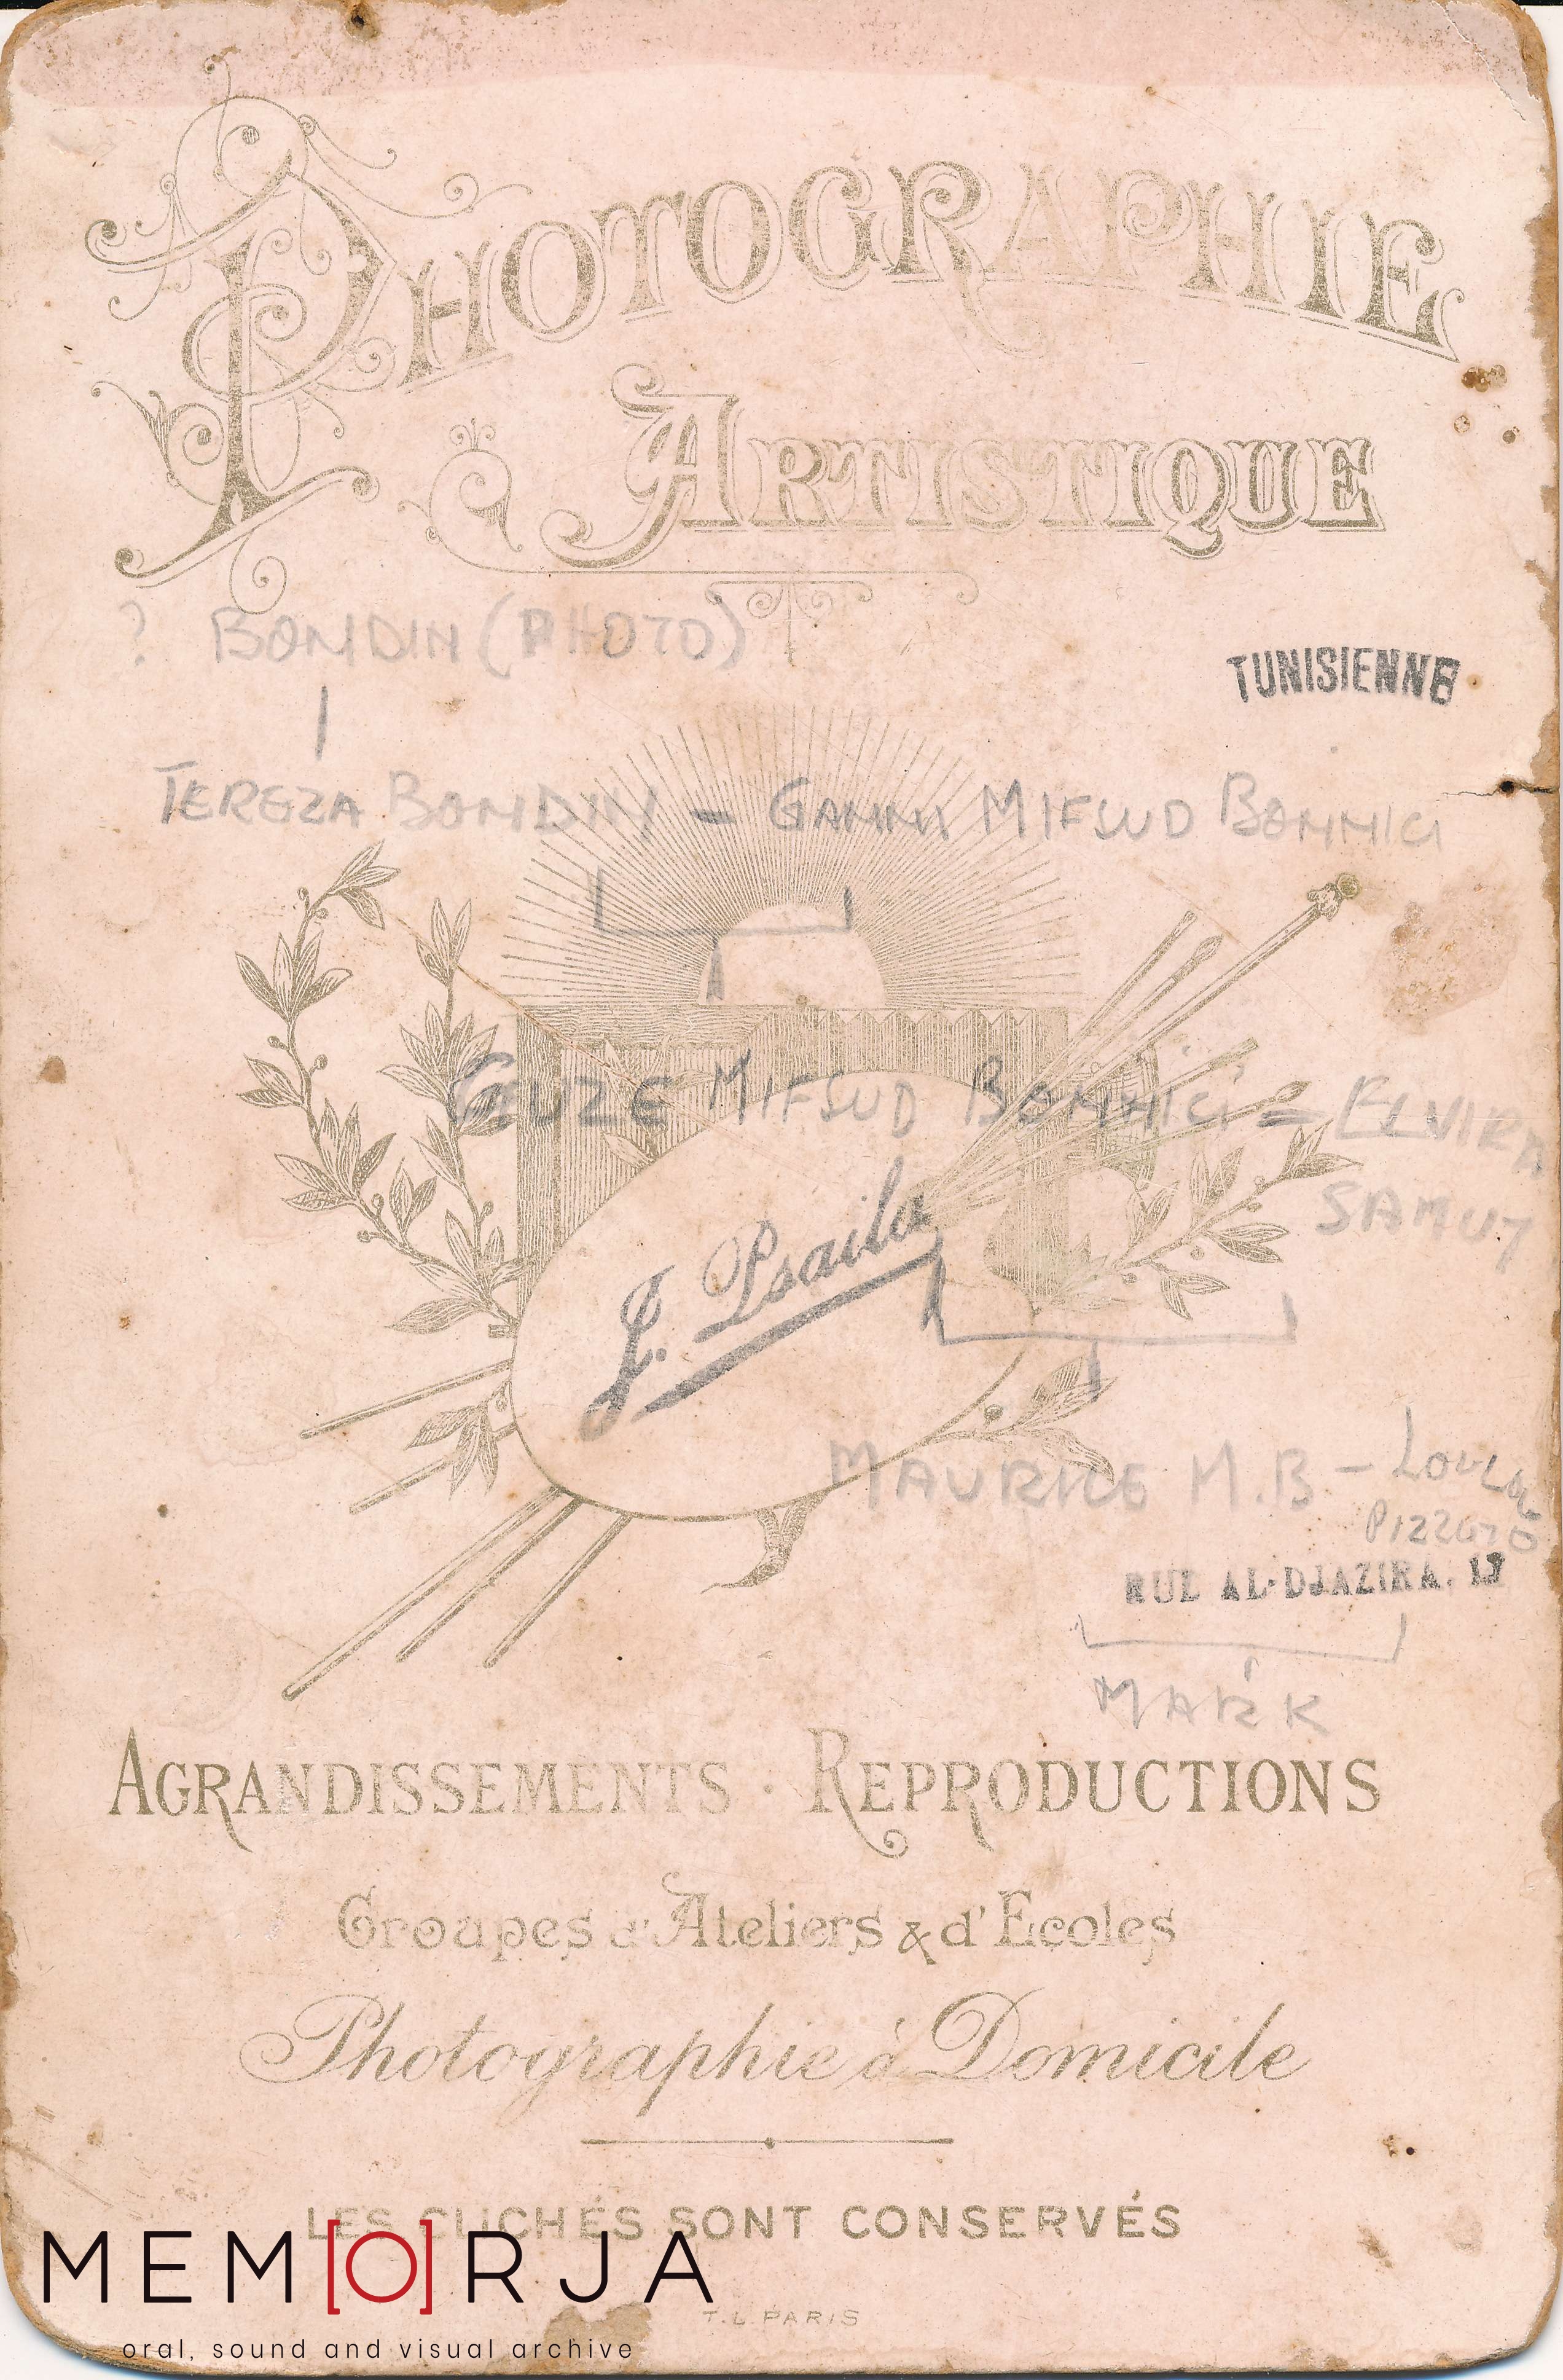 PHOTOGRAPHIE
ARTISTIQUE
? BONDIN (PHOTO)
TUNISIENNE
TEREZA BONDIN - GANNI MIFSUD BONNICI
MIFSUD BONNICI = ELVIRA
SAMUT
J. Psaila
MAURICE M.B - LOUISE
RUE AL-DJAZIRA, 17
MARK
AGRANDISSEMENTS · REPRODUCTIONS
Groupes d'Ateliers & d'Ecoles
Photographie à Domicile
LES CLICHÉS SONT CONSERVÉS
MEM[O]RJA
T.L. PARIS
oral, sound and visual archive